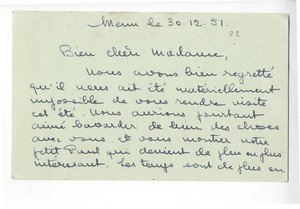 Menn le 30.12.51.
82
Bien chère Madame,
Nous avons bien regretté
qu'il nous ait été matériellement
impossible de vous rendre visite
cet été. Nous aurions pourtant
aimé bavarder de bien des choses
avec vous, et vous montrer notre
petit Paul qui devient de plus en plus
intéressant. Les temps sont de plus en